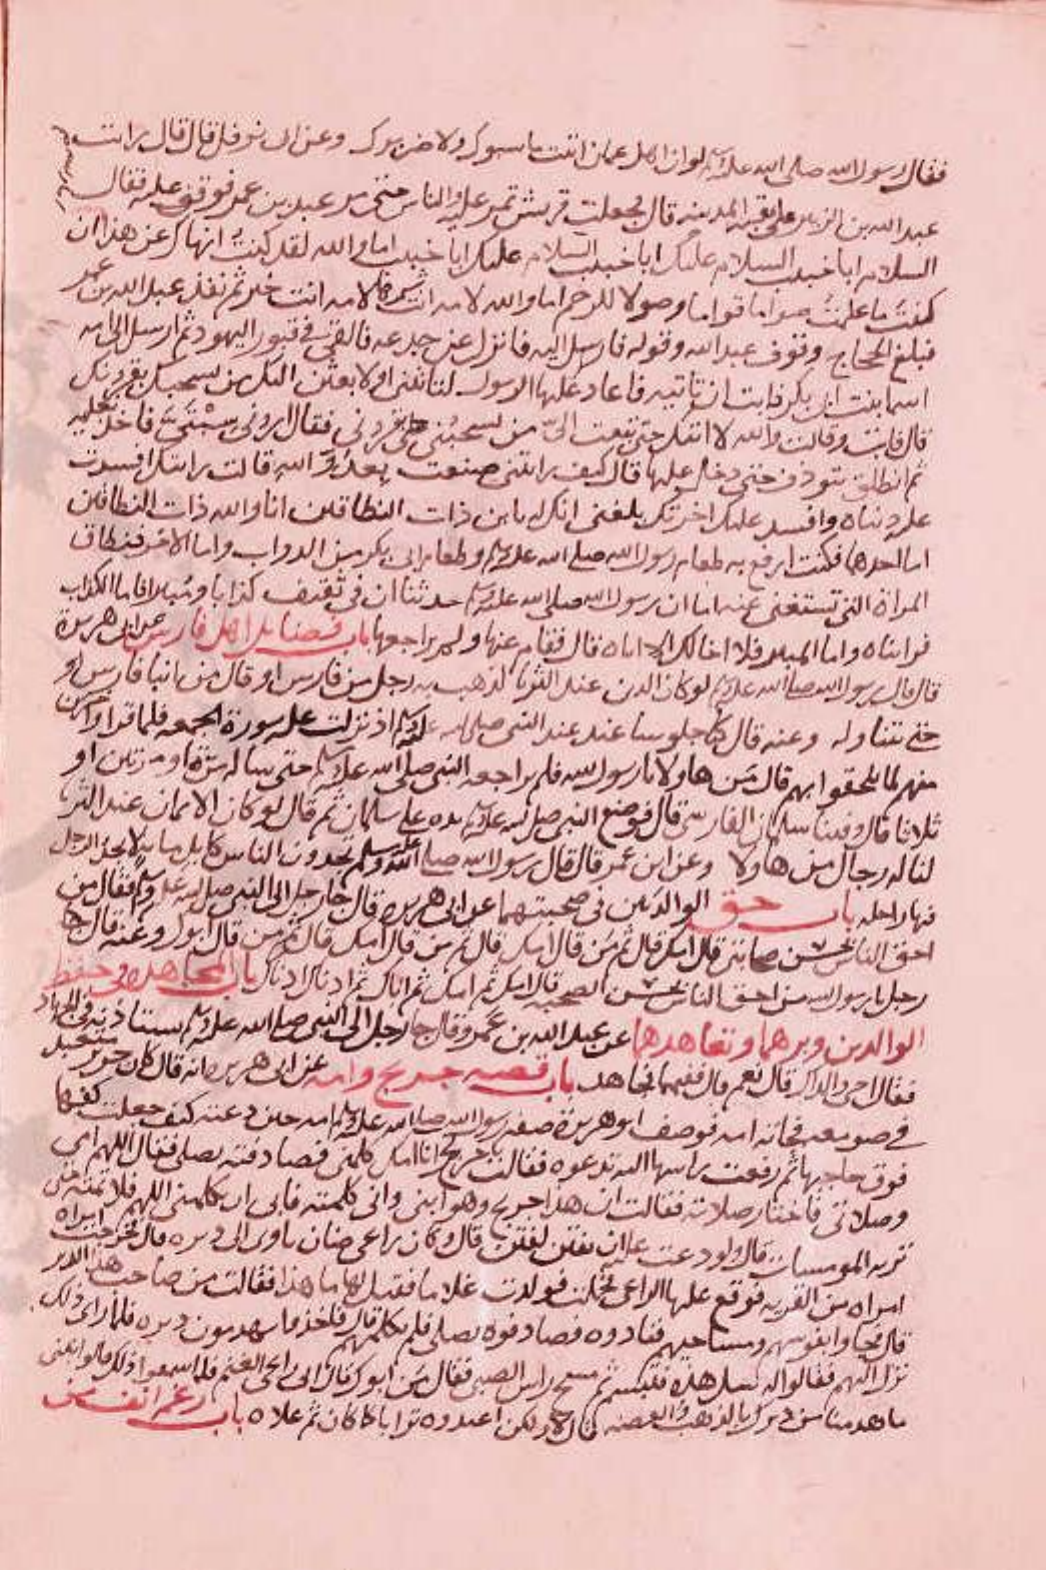 فقال رسول الله صلى الله عليه وسلم لو ان اهل عمان اتيت ما سبوك ولا ضربوك وعن ابى نوفل قال قال رايت
عبد الله بن الزبير على عقبة المدينه قال فجعلت قريش تمر عليه والناس حتى مر عبد بن عمر فوقف عليه فقال
السلام ابا خبيب السلام عليك ابا خبيب السلام عليك ابا خبيب اما والله لقد كنت انهاك عن هذا ان
كنت ما علمت صواما قواما وصولا للرحم اما والله لامه انت شرها لامه انت خير ثم نفذ عبد الله بن عمر
فبلغ الحجاج وقوف عبد الله وقوله فارسل اليه فانزل عن جذعه فالقى في قبور اليهود ثم ارسل الى امه
اسما بنت ابى بكر فابت ان تاتيه فاعاد عليها الرسول لتاتينى او لابعثن اليك من يسحبك بقرونك
قال فابت وقالت والله لا اتيك حتى تبعث الىّ من يسحبنى بقرونى فقال ارونى سبتىّ فاخذ نعليه
ثم انطلق يتوذف حتى دخل عليها قال كيف رايتنى صنعت بعدو الله قالت رايتك افسدت
عليه دنياه وافسد عليك اخرتك بلغنى انك له يا بن ذات النطاقين انا والله ذات النطاقين
اما احدهما فكنت ارفع به طعام رسول الله صلى الله عليه وسلم وطعام ابى بكر من الدواب واما الاخر فنطاق
المراة التى تستغنى عنه اما ان رسول الله صلى الله عليه وسلم حدثنا ان في ثقيف كذابا ومبيرا فاما الكذاب
فرايناه واما المبير فلا اخالك الا اياه قال فقام عنها ولم يراجعها باب فضايل اهل فارس عن ابى هريرة
قال قال رسول الله صلى الله عليه وسلم لو كان الدين عند الثريا لذهب به رجل من فارس او قال من ابنا فارس او
حتى يتناوله وعنه قال كنا جلوسا عند عند النبى صلى الله عليه وسلم اذ نزلت عليه سورة الجمعه فلما قرا واخرين
منهم لما يلحقوا بهم قال من هاولا يا رسول الله فلم يراجعه النبى صلى الله عليه وسلم حتى ساله مرة او مرتين او
ثلاثا قال وفينا سلمان الفارسى قال فوضع النبى صلى الله عليه وسلم يده على سلمان ثم قال لو كان الايمان عند الثريا
لناله رجال من هاولا وعن ابن عمر قال قال رسول الله صلى الله عليه وسلم تجدون الناس كابل مايه لا يجد الرجل
فيها راحله باب حق الوالدين في صحبتهما عن ابى هريره قال جا رجل الى النبى صلى الله عليه وسلم فقال من
احق الناس بحسن صحابتى قال امك قال ثم من قال امك قال ثم من قال امك قال ثم من قال ابوك وعنه قال جا
رجل يا رسول الله من احق الناس بحسن الصحبه قال امك ثم امك ثم اباك ثم ادناك ادناك باب المجاهده في حفظ
الوالدين وبرهما وتعاهدهما عن عبد الله بن عمر وقال جا رجل الى النبى صلى الله عليه وسلم يستاذنه في الجهاد
فقال احى والداك قال نعم قال ففيهما فجاهد باب قصه جريج وامه عن ابى هريره انه قال كان جريج يتعبد
في صومعه فجاته امه فوصف ابو هريرة صفه رسول الله صلى الله عليه وسلم امه حين دعته كيف جعلت كفها
فوق حاجبها ثم رفعت راسها اليه تدعوه فقالت يا جريج انا امك كلمنى فصادفته يصلى فقال اللهم امى
وصلاتى فاختار صلاته فقالت ان هذا جريج وهو ابنى وانى كلمته فابى ان يكلمنى اللهم فلا تمته حتى
تريه المومسات قال ولو دعت عليه ان يفتن لفتن قال وكان راعى ضان ياوى الى ديره قال فخرجت
امراة من القريه فوقع عليها الراعى فحملت فولدت غلاما فقيل لها ما هذا فقالت من صاحب هذا الدير
قال فجاوا بفوسهم ومساحيهم فنادوه فصادفوه يصلى فلم يكلمهم قال فاخذوا يهدمون ديره فلما راى ذلك
نزل اليهم فقالوا له سل هذه فتبسم ثم مسح راس الصبى فقال من ابوك قال ابى راعى الغنم فلما سمعوا ذلك قالوا نبنى
ما هدمنا من ديرك بالذهب والفضه قال لا ولكن اعيدوه ترابا كما كان ثم علاه باب رغم انف من